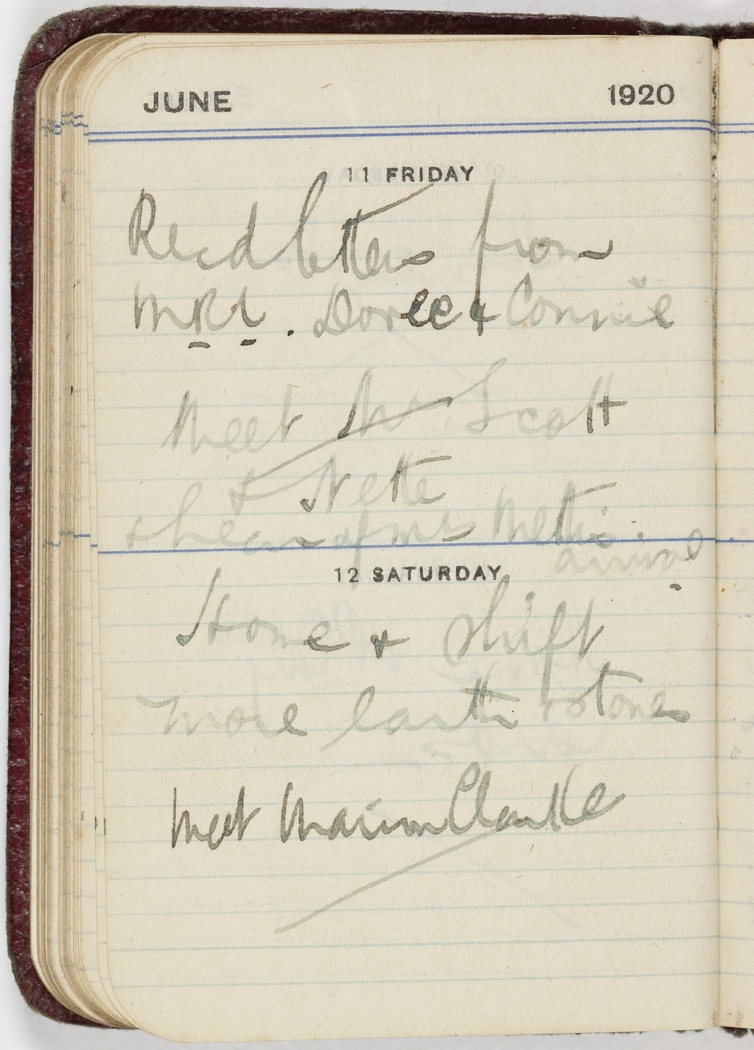 JUNE 1920
11 FRIDAY
Recd letters from
MRL. Doree & Connie
Meet Mr Scott
& Nette
& hear of Mrs
arrival
12 SATURDAY
Home & shift
more earth & stones
Meet Marion Clarke